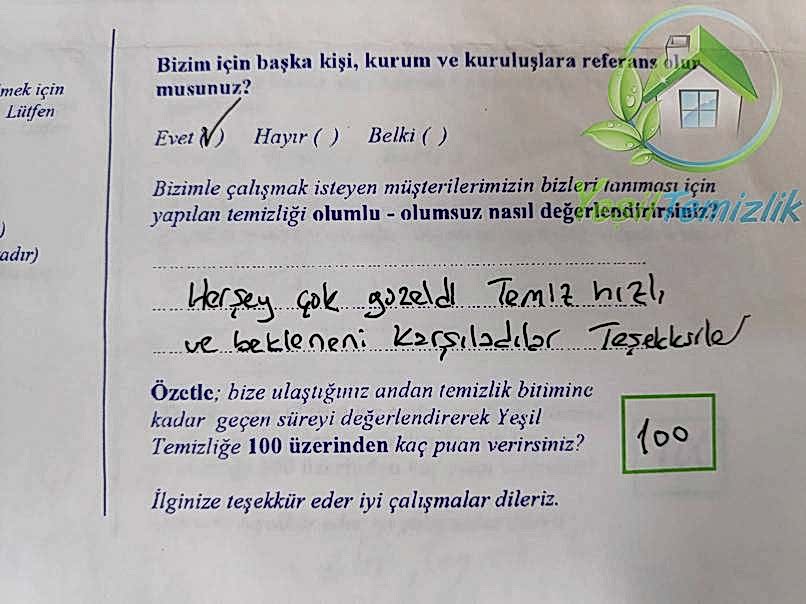 mek için
Lütfen
)
adır)
Bizim için başka kişi, kurum ve kuruluşlara referans olur
musunuz?
Evet (√) Hayır ( ) Belki ( )
Bizimle çalışmak isteyen müşterilerimizin bizleri tanıması için
yapılan temizliği olumlu - olumsuz nasıl değerlendirirsiniz?
Yeşil Temizlik
Herşey çok güzeldi Temiz hızlı
ve bekleneni karşıladılar
Özetle; bize ulaştığınız andan temizlik bitimine
kadar geçen süreyi değerlendirerek Yeşil
Temizliğe 100 üzerinden kaç puan verirsiniz?
100
İlginize teşekkür eder iyi çalışmalar dileriz.